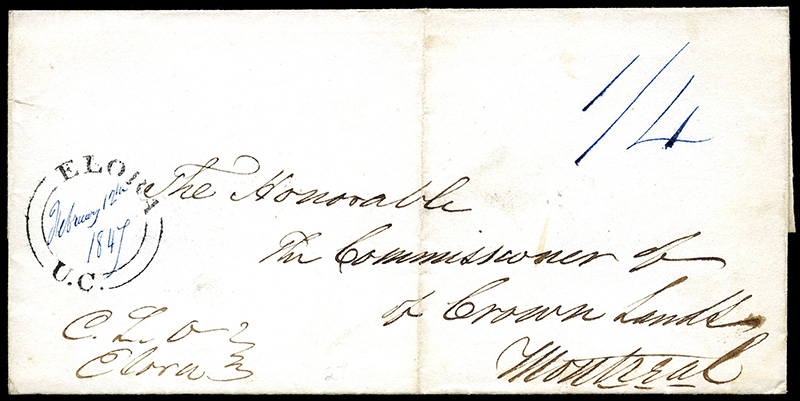 1/4
ELORA
February 12th
1847
U.C.
The Honorable
The Commissioner of
of Crown Lands
Montreal
C. L. O
Elora
27